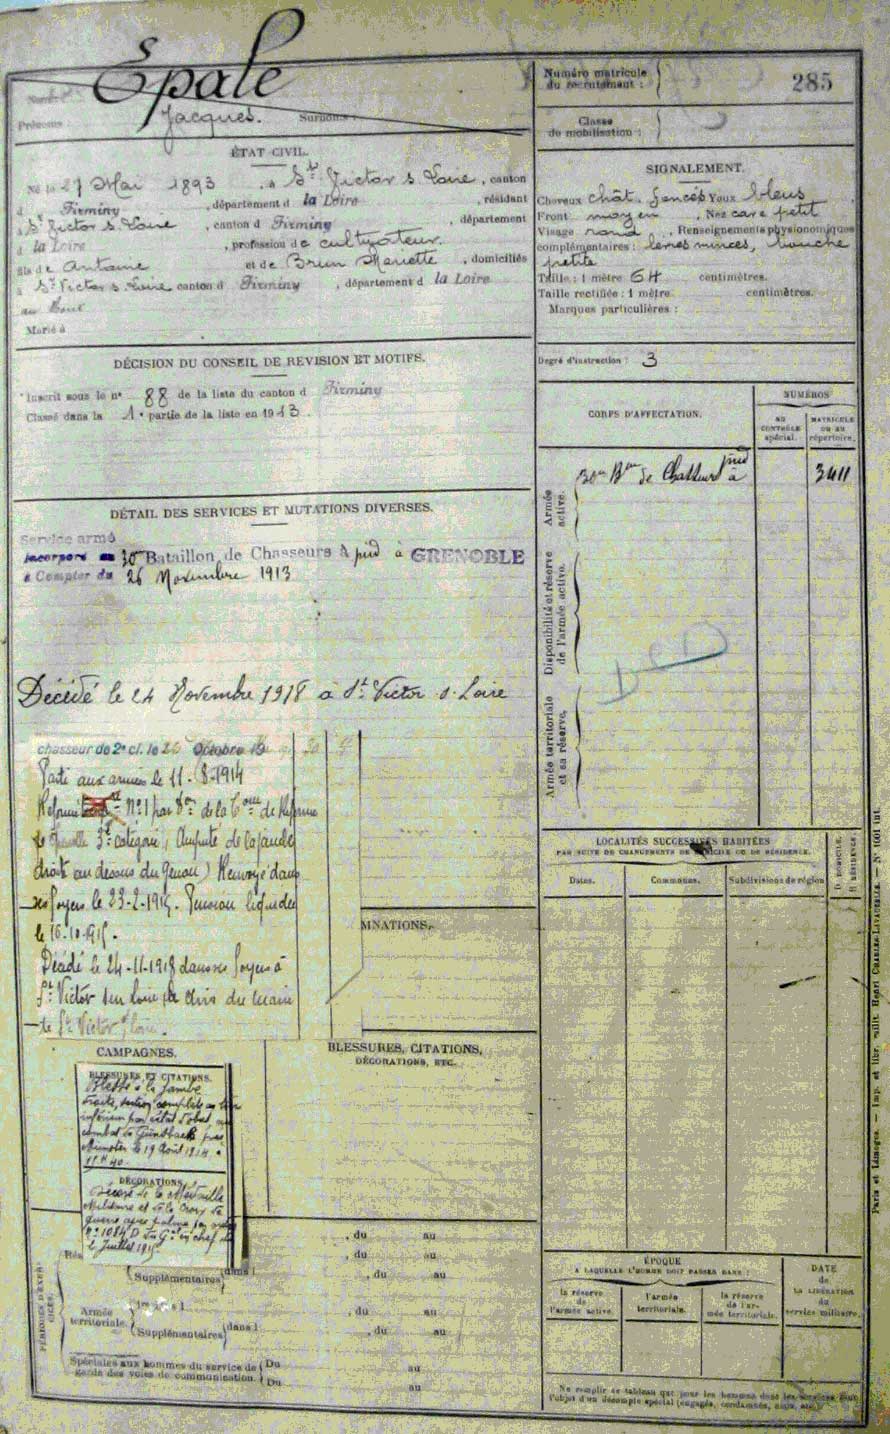 Épale
Nom :
Prénoms : Jacques. Surnoms :
Numéro matricule du recrutement : 285
Classe de mobilisation :
ÉTAT CIVIL.
Né le 27 Mai 1893, à St Victor s Loire, canton
d Firminy, département d la Loire, résidant
à St Victor s Loire, canton d Firminy, département
d la Loire, profession de cultivateur.
fils de Antoine et de Brun Mariette, domiciliés
à St Victor s Loire canton d Firminy, département d la Loire
Marié à
SIGNALEMENT.
Cheveux chât. foncés Yeux bleus
Front moyen, Nez cave petit
Visage rond, Renseignements physionomiques
complémentaires : lèvres minces, bouche
petite
Taille : 1 mètre 64 centimètres.
Taille rectifiée : 1 mètre centimètres.
Marques particulières :
Degré d'instruction : 3
DÉCISION DU CONSEIL DE REVISION ET MOTIFS.
Inscrit sous le n° 88 de la liste du canton d Firminy
Classé dans la 1e partie de la liste en 1913.
CORPS D'AFFECTATION.
NUMÉROS
AU CONTRÔLE spécial.
MATRICULE OU AU répertoire.
Armée active.
30me Bon de Chasseurs à pied 3411
Disponibilité et réserve de l'armée active.
Armée territoriale et sa réserve.
DCD
DÉTAIL DES SERVICES ET MUTATIONS DIVERSES.
Service armé
Incorporé au 30me Bataillon de Chasseurs à pied à GRENOBLE
à Compter du 26 Novembre 1913
Décédé le 24 Novembre 1918 à St Victor s. Loire
chasseur de 2e cl. le Octobre
Parti aux armées le 11-8-1914
Réformé n°1 par Don de la Com de Réforme
de 3e catégorie (Amputé de la jambe
droite au dessus du genou) Renvoyé dans
ses foyers le 23-2-1915. Pension liquidée
le 16-10-1915.
Décédé le 24-11-1918 dans ses foyers à
St Victor sur Loire avis du maire
de St Victor s/ Loire.
MNATIONS.
LOCALITÉS SUCCESSIVES HABITÉES
PAR SUITE DE CHANGEMENTS DE DOMICILE OU DE RÉSIDENCE.
Dates.
Communes.
Subdivisions de région
D. DOMICILE.
R. RÉSIDENCE.
CAMPAGNES.
BLESSURES, CITATIONS,
DÉCORATIONS, ETC.
BLESSURES ET CITATIONS.
Blessé à la jambe
droite, section complète au tiers
inférieur par éclat d'obus, au
combat de Gunsbach près
Munster le 19 Août 1914 à
11H40.
DÉCORATIONS
Décoré de la Médaille
Militaire et de la Croix de
guerre avec palme par ordre
n° 1084 D du Gal en chef du
2 Juillet 1915
PÉRIODES D'EXERCICES.
Supplémentaires dans l , du au
Armée territoriale.
Supplémentaires dans l , du au
Spéciales aux hommes du service de garde des voies de communication. Du au
Du au
ÉPOQUE
A LAQUELLE L'HOMME DOIT PASSER DANS :
la réserve de l'armée active.
l'armée territoriale.
la réserve de l'armée territoriale.
DATE de LA LIBÉRATION du service militaire.
Ne remplir ce tableau que pour les hommes dont les services font
l'objet d'un décompte spécial (engagés, condamnés, omis, etc.)
Paris et Limoges. — Imp. et libr. milit. Henri CHARLES-LAVAUZELLE. — N° 1001 int.